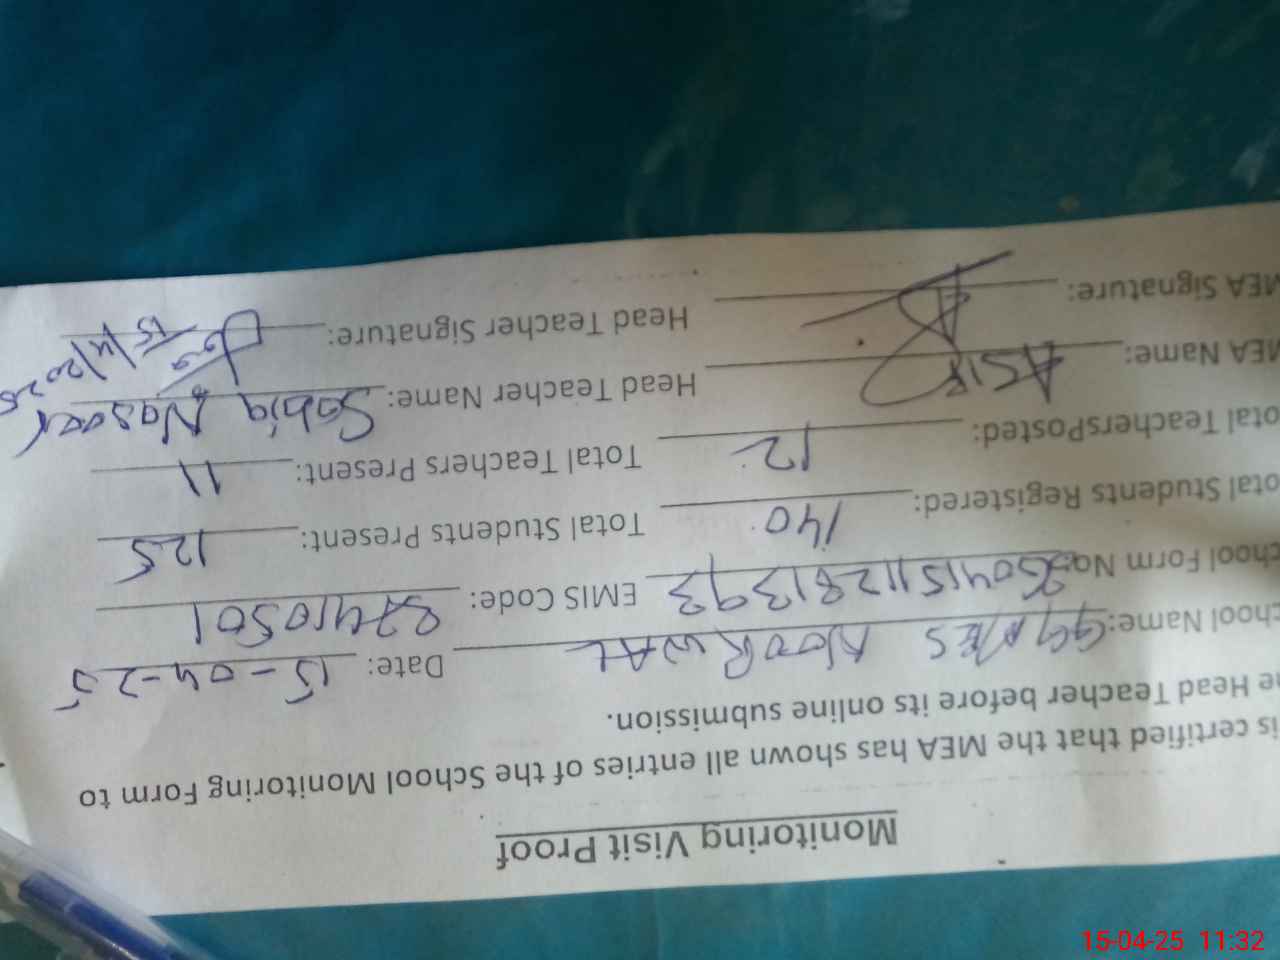 Monitoring Visit Proof
is certified that the MEA has shown all entries of the School Monitoring Form to
he Head Teacher before its online submission.
chool Name: GGMES NOORWAL Date: 15-04-25
chool Form No: EMIS Code: 37410501
otal Students Registered: 140 Total Students Present: 125
otal TeachersPosted: 12 Total Teachers Present: 11
MEA Name: ASIF Head Teacher Name: Sobia Naseer
MEA Signature: Head Teacher Signature:
15/4/2025
15-04-25 11:32